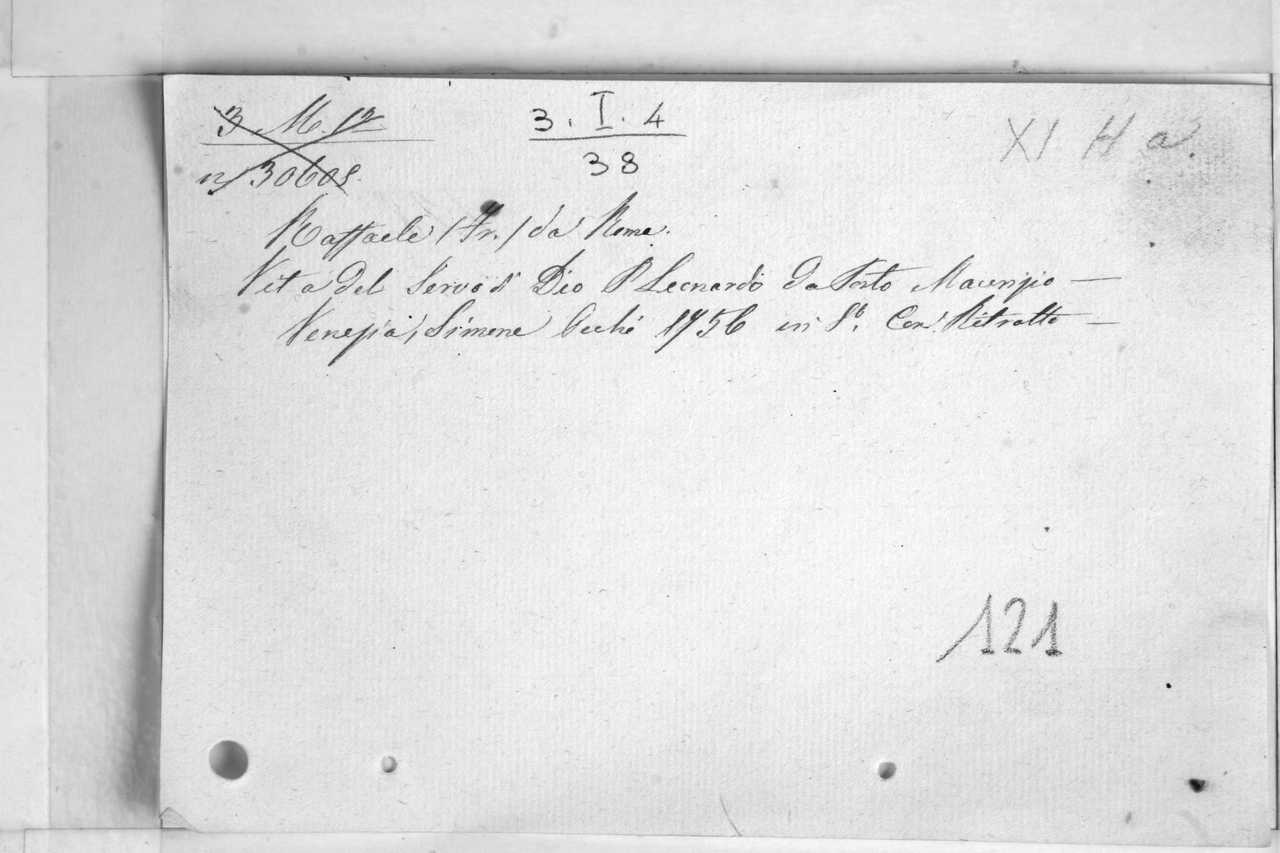 3 M. 12
3. I. 4
XI H a.
n/ 30605
38
Raffaele (Fr.) da Roma.
Vita del Servo di Dio P. Leonardo da Porto Maurizio —
Venezia, Simone Occhi 1756 in 8º. Con Ritratto —
121